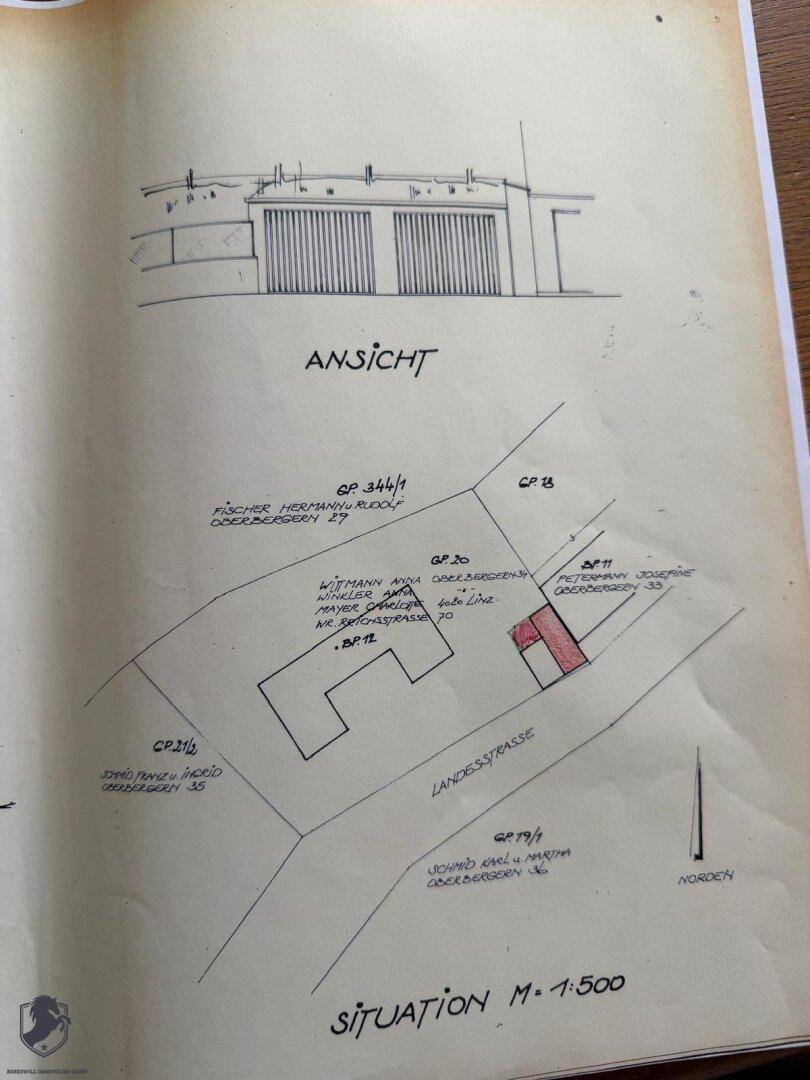 ANSICHT
GP. 344/1
FISCHER HERMANN u. RUDOLF
OBERBERGERN 29
GP. 18
GP. 20
WITTMANN ANNA OBERBERGERN 34
WINKLER ANNA -"-
MAYER CHARLOTTE 4020 LINZ.
WR. REICHSSTRASSE 70
BP. 11
PETERMANN JOSEFINE
OBERBERGERN 33
.BP. 12
GP. 21/2
SCHMID FRANZ u. INGRID
OBERBERGERN 35
LANDESSTRASSE
GP. 19/1
SCHMID KARL u. MARTHA
OBERBERGERN 36
NORDEN
SITUATION M = 1:500
BERESWILL IMMOBILIEN GMBH